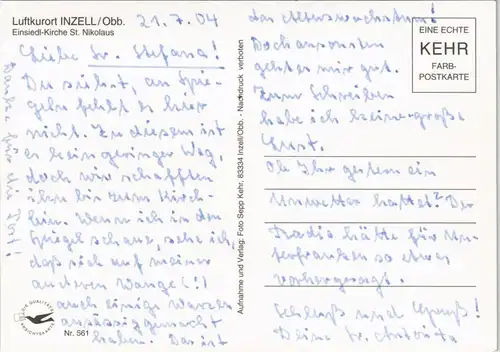 Luftkurort INZELL/Obb.
Einsiedl-Kirche St. Nikolaus
21.7.04
Liebe Sr. Stefana!
Du siehst, an Spie-
geln fehlt es hier
nicht. Zu diesem ist
es kein geringer Weg,
doch wir schafften
ihn bis zum Kirch-
lein. Wenn ich in den
Spiegel schaue, sehe ich,
daß sich auf meiner
anderen Wange (!)
auch einige Warzen
ansässig gemacht
haben. Das ist
Danke für die
Nr. 561
Aufnahme und Verlag: Foto Sepp Kehr, 83334 Inzell/Obb. - Nachdruck verboten
das
Doch ansonsten
geht es mir gut.
Zum Schreiben
habe ich keine große
Lust.
Ob Ihr gestern ein
Unwetter hattet? Der
Radio hätte für Un-
terfranken so etwas
vorhergesagt.
Schluß und Gruß!
Deine Sr.
EINE ECHTE
KEHR
FARB-
POSTKARTE